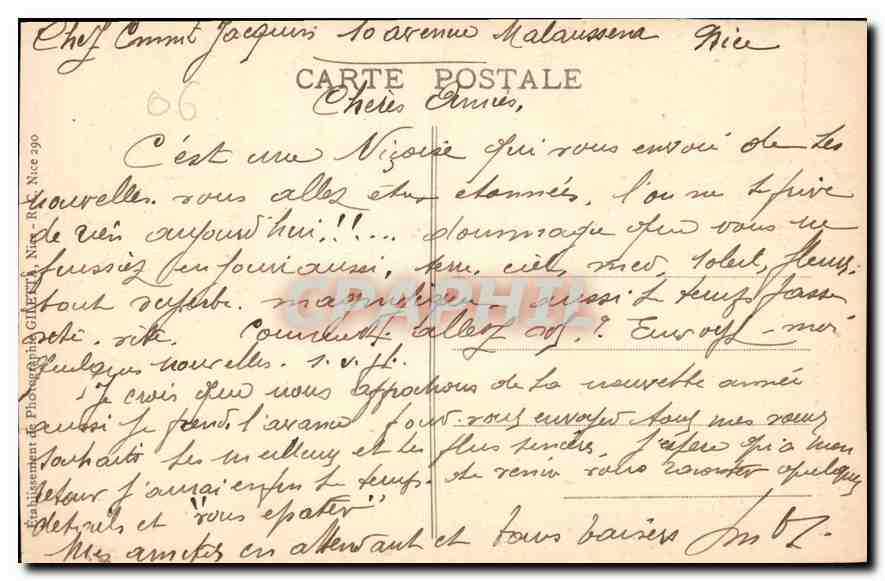 Chez Commt Jacquin 10 avenue Malaussena Nice
CARTE POSTALE
06
Chères Amies,
C'est une Niçoise qui vous envoie de ses
nouvelles. vous allez être étonnées, l'on ne se prive
de rien aujourd'hui!!!... dommage que vous ne
puissiez en jouir aussi, terre, ciel, mer, soleil, fleurs,
tout superbe. magnifique aussi le temps passe
vite. vite. Comment allez vs.? Envoyez-moi
quelques nouvelles. s.v.pl.
Je crois que nous approchons de la nouvelle année
aussi je prends l'avance pour vous envoyer tous mes vœux
souhaits les meilleurs et les plus sincères, j'espère qu'à mon
retour j'aurai enfin le temps de venir vous raconter quelques
détails et "vous épater"
Mes amitiés en attendant et bons baisers
Etablissement de Photographie GILETTA, Nice - R.C. Nice 290
CPAPHIL